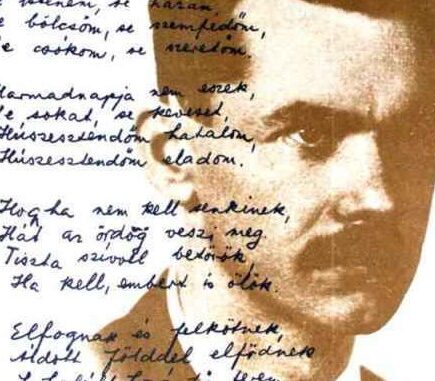 istenem, se hazám,
e bölcsőm, se szemfedőm,
e csókom, se szeretőm.
Harmadnapja nem eszek,
e sokat, se keveset,
Húszesztendőm hatalom,
Húszesztendőm eladom.
Hogha nem kell senkinek,
Hát az ördög veszi meg.
Tiszta szívvel betörök,
Ha kell, embert is ölök.
Elfognak és felkötnek,
Áldott földdel elfödnek